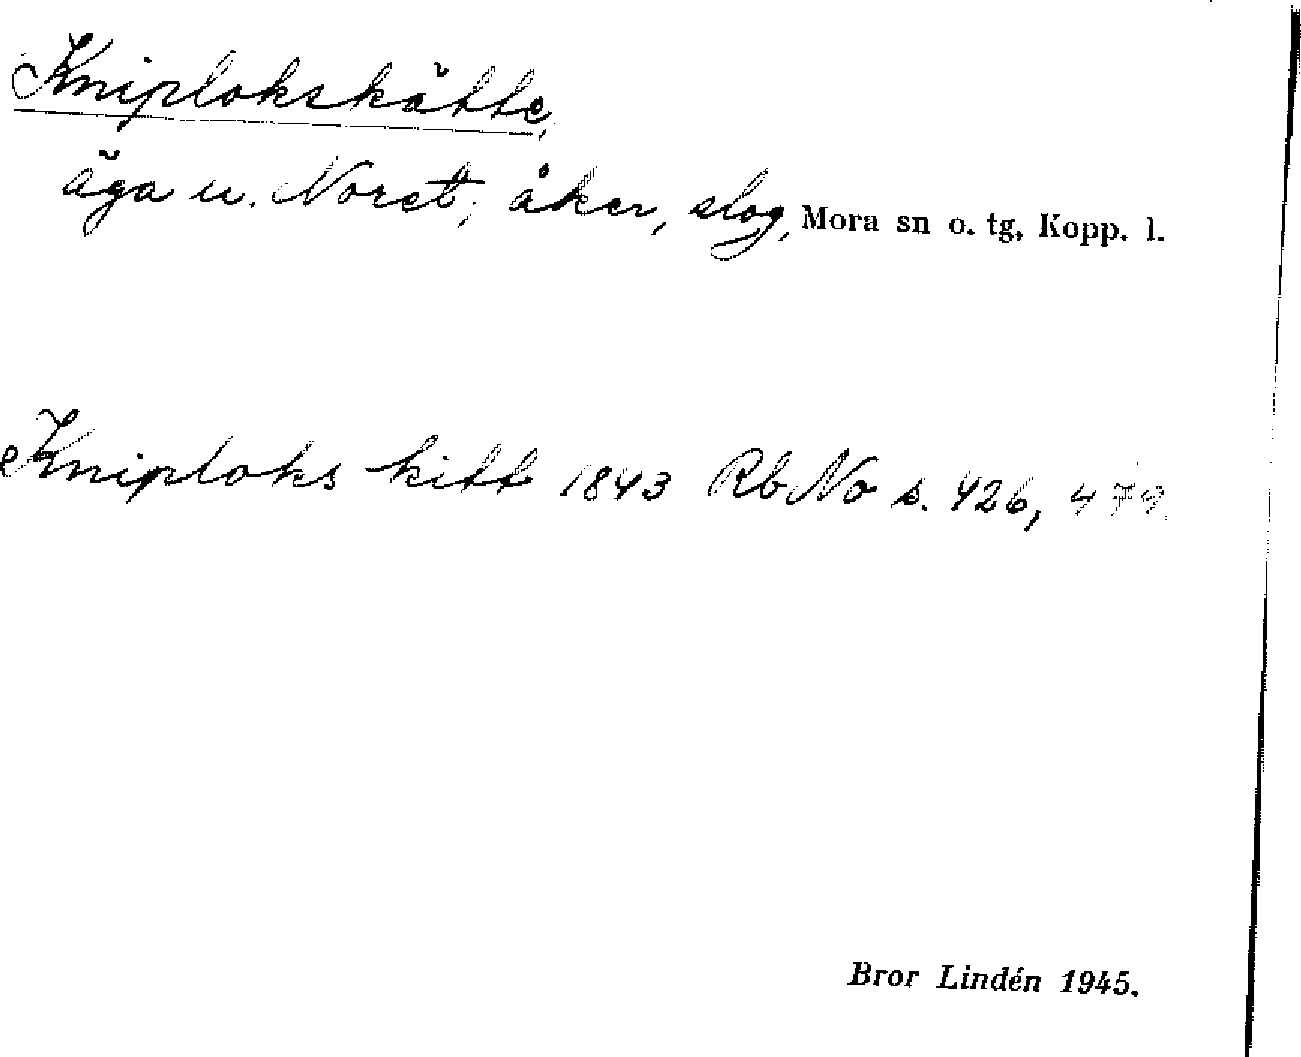 Kniplokskätte,
äga u. Noret; åker, slog, Mora sn o. tg, Kopp. l.
Kniploks kitt 1843 Rb No s. 426, 479.
Bror Lindén 1945.